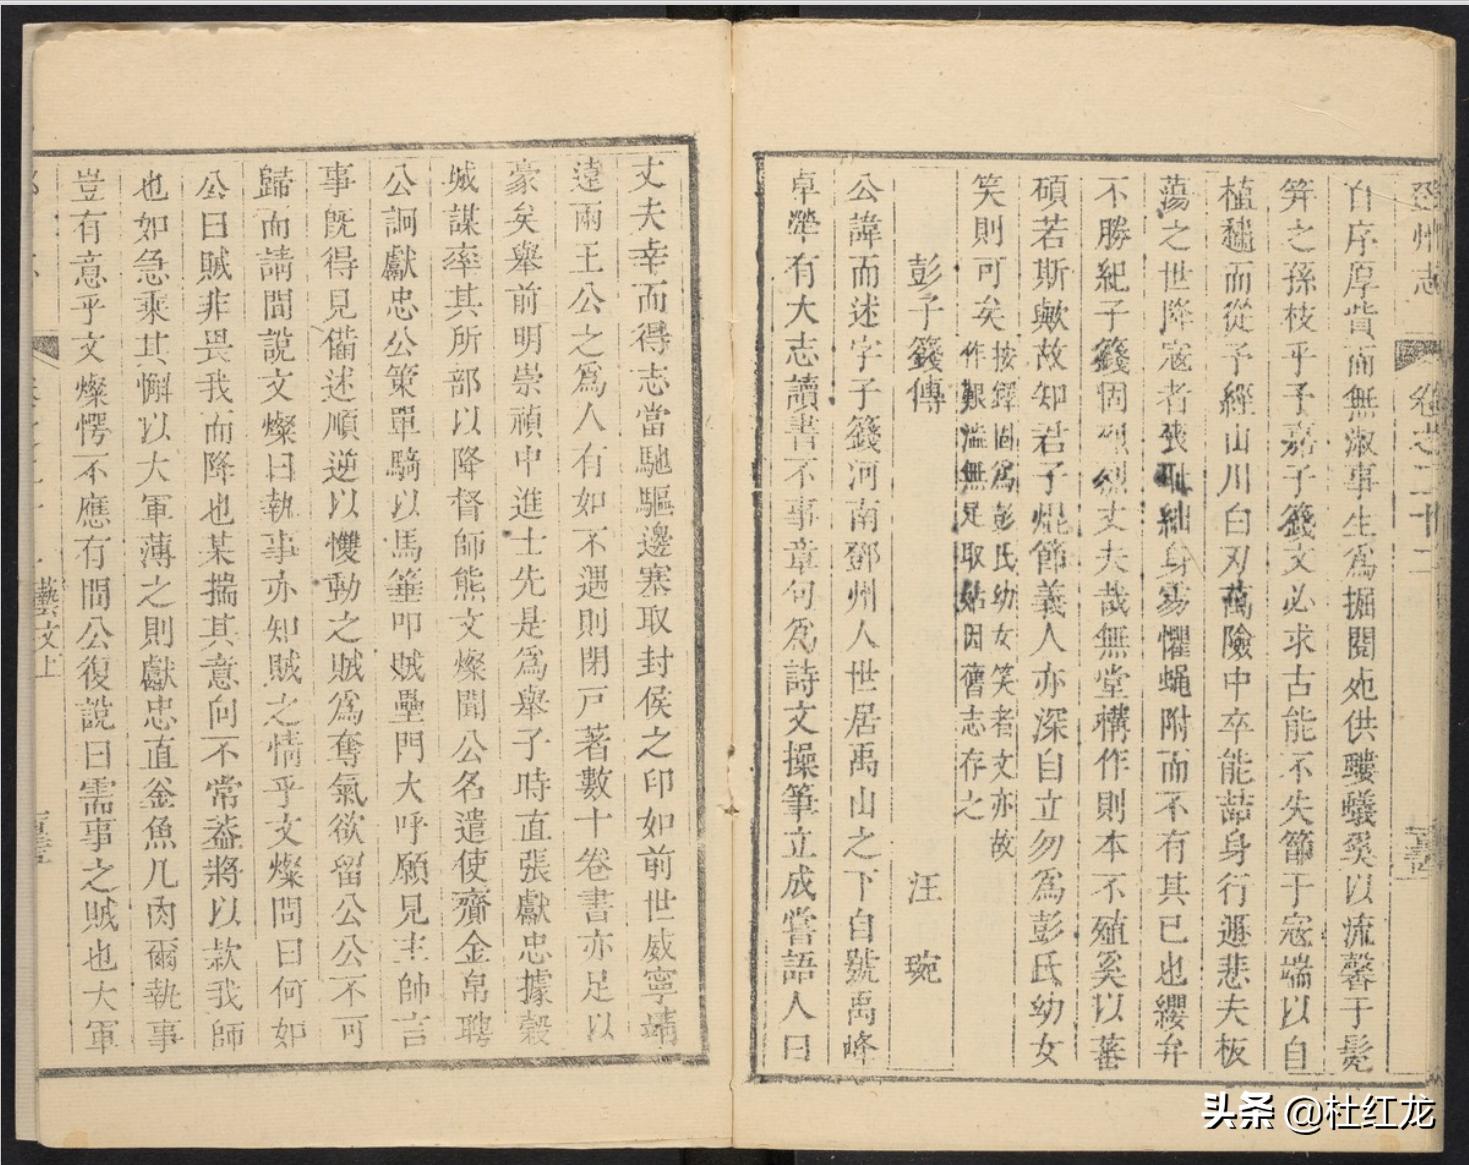 鄧州志
卷之二十二
自序厚貲而無淑事生爲掘閱死供螻蟻奚以流馨于髡
笄之孫枝乎予嘉子籛文必求古能不失節于寇端以自
植繡而從予經山川白刃萬險中卒能喆身行遯悲夫板
蕩之世降寇者喪恥絀身寡懼蝇附而不有其已也纓弁
不勝紀子籛固烈烈丈夫哉無堂構作則本不殖奚以蕃
碩若斯歟故知君子焜節義人亦深自立勿爲彭氏幼女
笑則可矣
按繹固爲彭氏幼女笑者文亦故
作艱澁無足取姑因舊志存之
彭子籛傳
汪琬
公諱而述字子籛河南鄧州人世居禹山之下自號禹峰
卓犖有大志讀書不事章句爲詩文操筆立成嘗語人曰
丈夫幸而得志當馳驅邊塞取封侯之印如前世威寧靖
遠兩王公之爲人有如不遇則閉戸著數十卷書亦足以
豪矣舉前明崇禎中進士先是爲舉子時直張獻忠據穀
城謀率其所部以降督師熊文燦聞公名遣使齎金帛聘
公詗獻忠公策單騎以馬箠叩賊壘門大呼願見主帥言
事旣得見備述順逆以慟動之賊爲奪氣欲留公公不可
歸而請間說文燦曰執事亦知賊之情乎文燦問曰何如
公曰賊非畏我而降也某揣其意向不常葢將以款我師
也如急乘其懈以大軍薄之則獻忠直釜魚几肉爾執事
豈有意乎文燦愕不應有間公復說曰需事之賊也大軍
藝文上